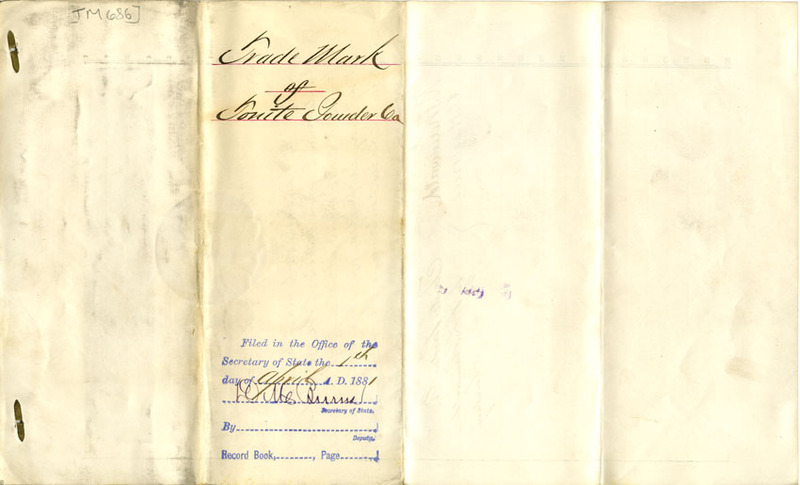 [TM 686]
Trade Mark
of
Tonite Powder Co
Filed in the Office of the
Secretary of State the 1th
day of April A. D. 1881
D. M. Burns
Secretary of State.
By
Deputy.
Record Book, , Page